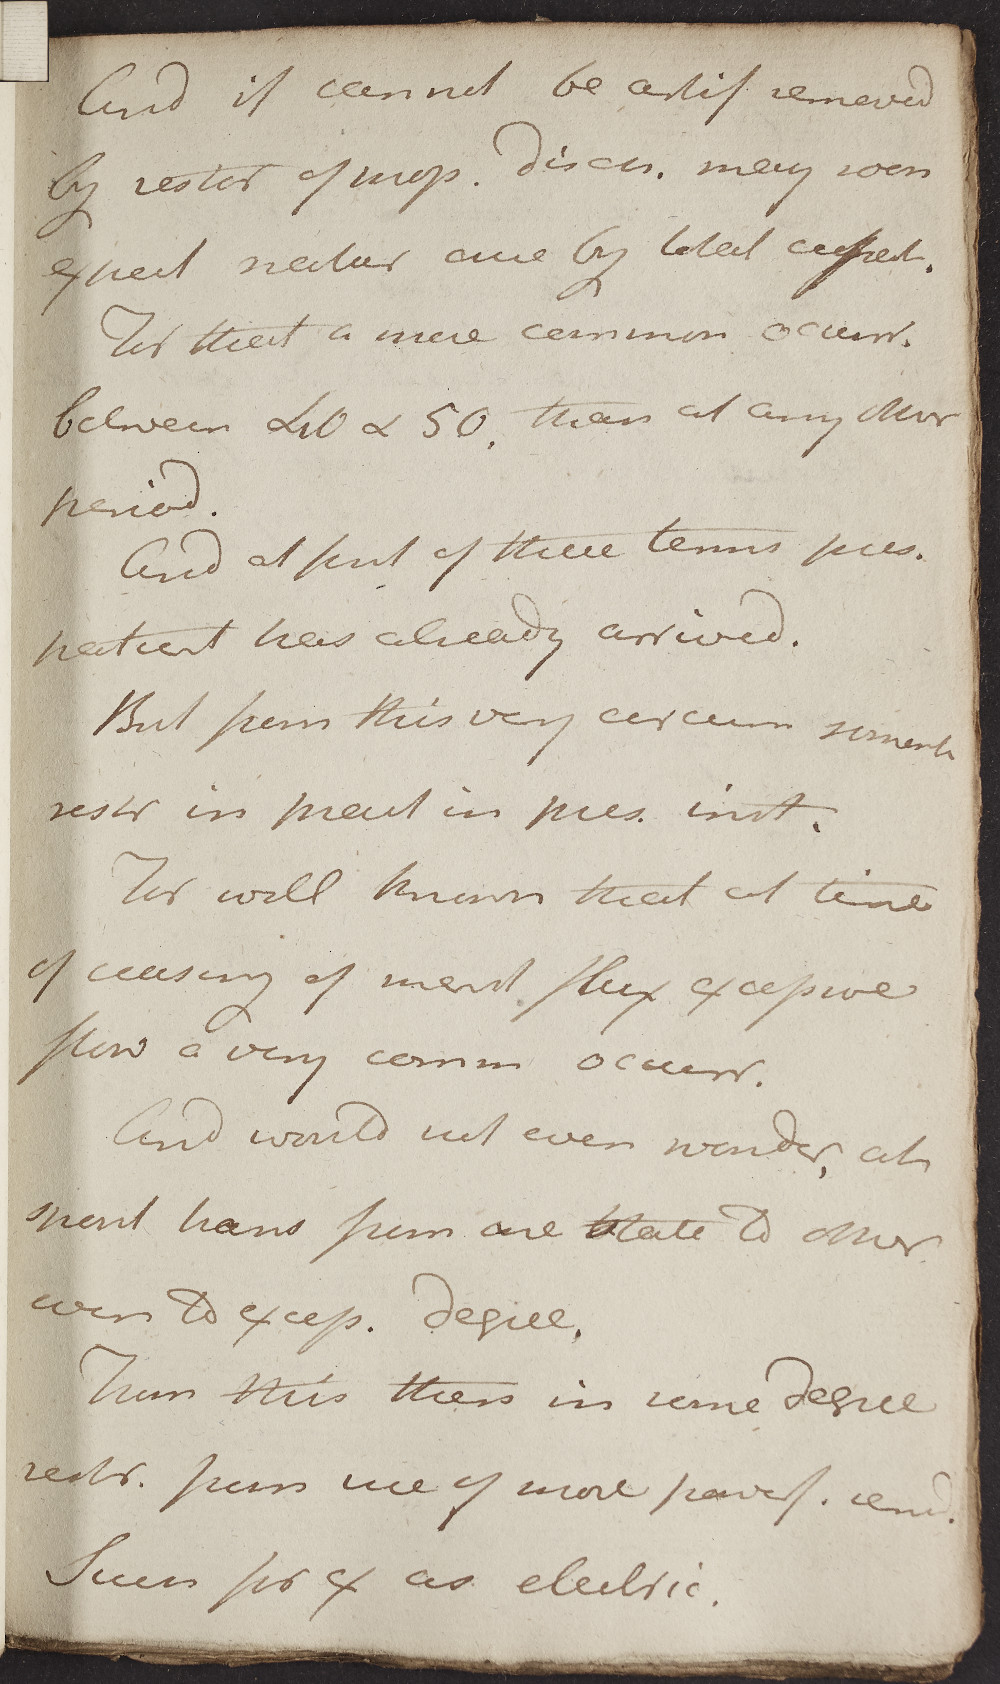 And if cannot be artif removed
by restor of prop. discr. may soon
expect natur cure by total cessat.
For that a more common occurr.
between 40 & 50, than at any other
period.
And at first of these terms pres.
patient has already arrived.
But from this very circum somewh
restr in pract in pres. inst.
For well known that at time
of ceasing of menst flux excessive
flow a very comm occurr.
And would not even wonder, at
spont trans from one state to other
even to excess. degree.
From this then in some degree
restr. from use of more powerf. rem.
Such for ex as electric.